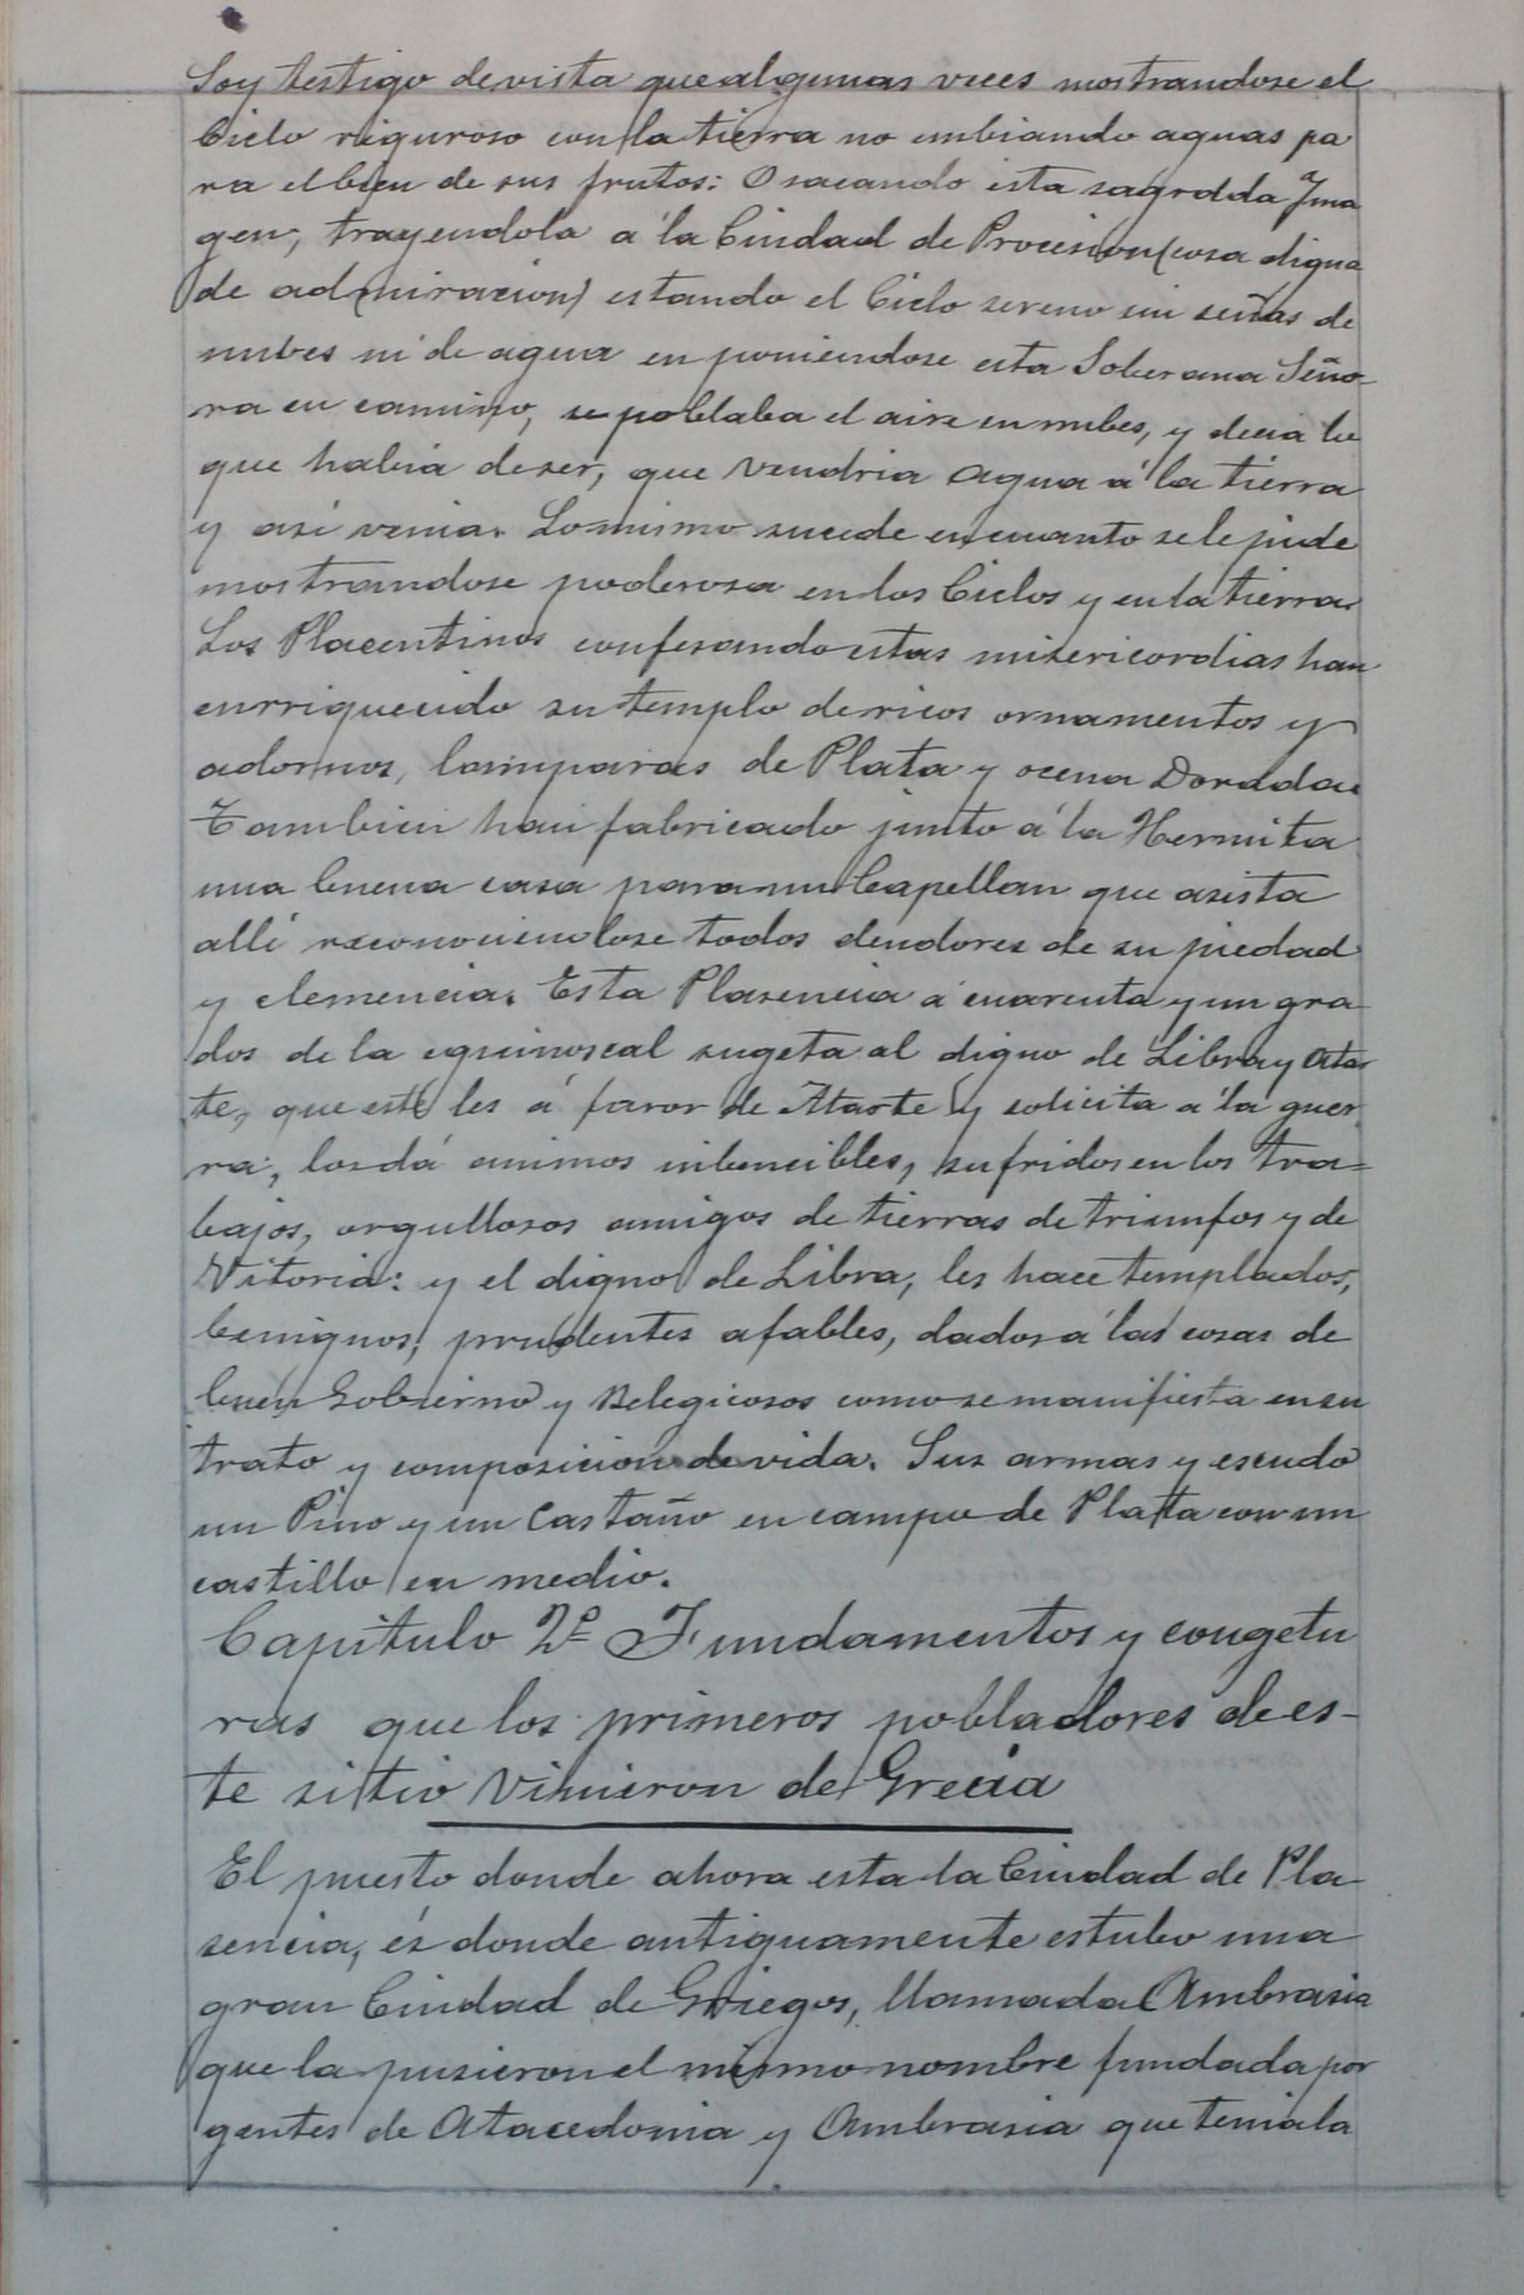 Soy testigo de vista que algunas veces mostrandose el
Cielo riguroso con la tierra no enbiando aguas pa
ra el bien de sus frutos: O sacando esta sagrada Yma
gen, trayendola á la Ciudad de Procesion (cosa digna
de admiracion) estando el Cielo sereno sin señas de
nubes ni de agua en poniendose esta Soberana Seño-
ra en camino, se poblaba el aire en nubes, y decia lo
que habia de ser, que vendria agua á la tierra
y asi venia. Lo mismo sucede en cuanto se le pide
mostrandose poderosa en los Cielos y en la tierra.
Los Placentinos confesando estas misericordias han
enrriquecido su templo de ricos ornamentos y
adornos, lamparas de Plata y Dorada.
Tambien han fabricado junto á la Hermita
una buena casa para un Capellan que asista
alli reconociendose todos deudores de su piedad
y clemencia. Esta Plasencia á cuarenta y un gra
dos de la equinoscal sugeta al digno de Libra y Atar
te, que este les á favor de Atarte y solicita á la guer
ra, los dá animos inbencibles, sufridos en los tra=
bajos, orgullosos amigos de tierras de triunfos y de
Vitoria: y el digno de Libra, les hace templados,
benignos, prudentes afables, dados á las cosas de
buen Gobierno y Belegicosos como se manifiesta en su
trato y composicion de vida. Sus armas y escudo
un Pino y un Castaño en campo de Plata con un
castillo en medio.
Capitulo 2º Fundamentos y congetu
ras que los primeros pobladores de es-
te sittio vinieron de Grecia
El puesto donde ahora esta la Ciudad de Pla
sencia, és donde antiguamente estubo una
gran Ciudad de Griegos, llamada Ambrasia
que la pusieron el mismo nombre fundada por
gentes de Atacedonia y Ambrasia que tenia la